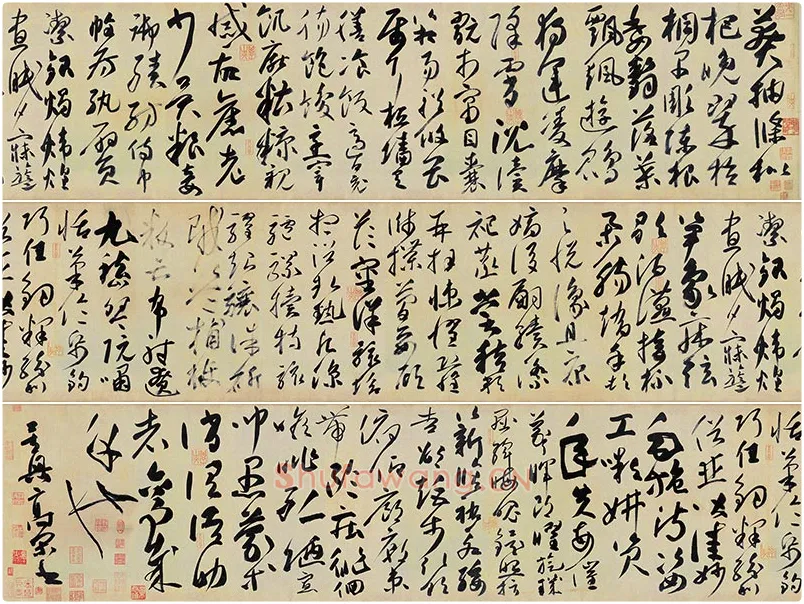 莽抽條枇
杷晚翠梧
桐早彫陳根
委翳落葉
飄颻遊鵾
獨運凌摩
絳霄耽讀
翫市寓目囊
箱易輶攸畏
屬耳垣牆具
膳飡飯適口充
腸飽飫烹宰
飢厭糟糠親
戚故舊老
少異粮妾
御績紡侍巾
帷房紈扇員
潔銀燭煒煌
晝眠夕寐籃
潔銀燭煒煌
晝眠夕寐籃
笋象床弦
歌酒讌接杯
舉觴矯手頓
足悅豫且康
嫡後嗣續祭
祀蒸嘗稽顙
再拜悚懼恐
惶牋牒簡要顧
答審詳骸垢
想浴執熱願涼
驢騾犢特駭
躍超驤誅斬
賊盜捕獲
叛亡布射遼
丸嵇琴阮嘯
恬筆倫紙鈞
巧任釣釋紛利
俗並皆佳妙
恬筆倫紙鈞
巧任釣釋紛利
俗並皆佳妙
毛施淑姿
工顰妍笑
年矢每催
羲暉朗曜旋璣
懸斡晦魄環照指
薪修祜永綏
吉劭矩步引領
俯仰廊廟束
帶矜莊徘徊
瞻眺孤陋寡
聞愚蒙等
誚謂語助
者焉哉
乎也
Shufawang.CN